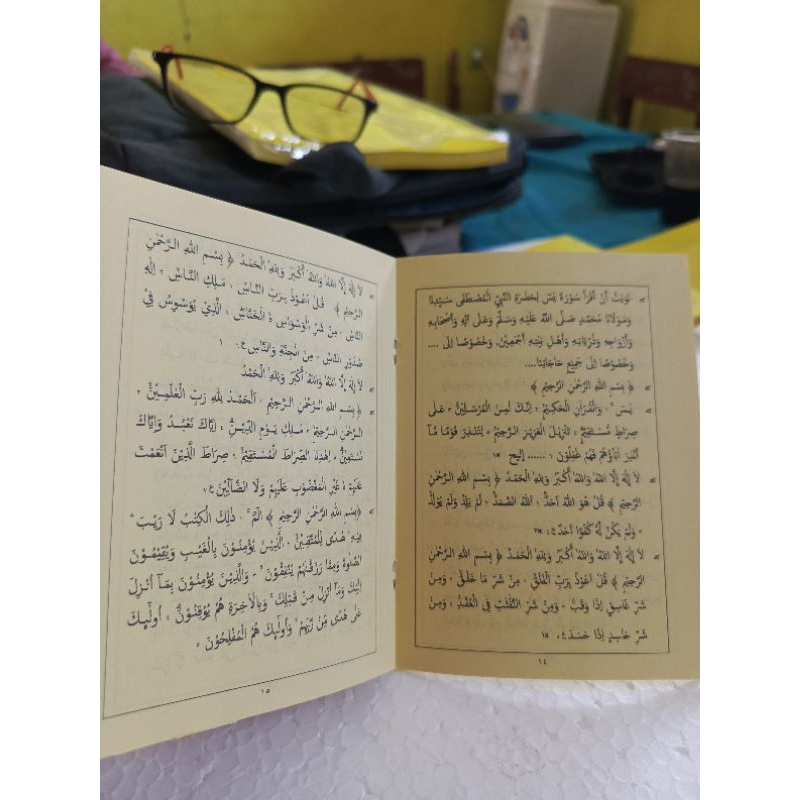 نَوَيْتُ أَنْ أَقْرَأَ سُوْرَةَ يٰسٓ لِحَضْرَةِ النَّبِيِّ الْمُصْطَفَى سَيِّدِنَا
وَمَوْلَانَا مُحَمَّدٍ صَلَّى اللهُ عَلَيْهِ وَسَلَّمَ وَعَلَى آلِهِ وَأَصْحَابِهِ
وَأَزْوَاجِهِ وَذُرِّيَّاتِهِ وَأَهْلِ بَيْتِهِ أَجْمَعِيْنَ، وَخُصُوْصًا إِلَى ....
وَخُصُوْصًا إِلَى جَمِيْعِ حَاجَاتِنَا....
﴿ بِسْمِ اللهِ الرَّحْمٰنِ الرَّحِيْمِ ﴾
يٰسٓ ۚ وَالْقُرْاٰنِ الْحَكِيْمِ ۙ اِنَّكَ لَمِنَ الْمُرْسَلِيْنَ ۙ عَلٰى
صِرَاطٍ مُّسْتَقِيْمٍ ۗ تَنْزِيْلَ الْعَزِيْزِ الرَّحِيْمِ ۙ لِتُنْذِرَ قَوْمًا مَّآ
اُنْذِرَ اٰبَاۤؤُهُمْ فَهُمْ غٰفِلُوْنَ ۰ ...... إلخ
لَا إِلٰهَ إِلَّا اللهُ وَاللهُ أَكْبَرُ وَلِلّٰهِ الْحَمْدُ ﴿ بِسْمِ اللهِ الرَّحْمٰنِ
الرَّحِيْمِ ﴾ قُلْ هُوَ اللهُ أَحَدٌ ۚ اَللهُ الصَّمَدُ ۚ لَمْ يَلِدْ وَلَمْ يُوْلَدْ
ۙ وَلَمْ يَكُنْ لَّهُ كُفُوًا أَحَدٌ ࣖ ٣×
لَا إِلٰهَ إِلَّا اللهُ وَاللهُ أَكْبَرُ وَلِلّٰهِ الْحَمْدُ ﴿ بِسْمِ اللهِ الرَّحْمٰنِ
الرَّحِيْمِ ﴾ قُلْ أَعُوْذُ بِرَبِّ الْفَلَقِ ۙ مِنْ شَرِّ مَا خَلَقَ ۙ وَمِنْ
شَرِّ غَاسِقٍ إِذَا وَقَبَ ۙ وَمِنْ شَرِّ النَّفّٰثٰتِ فِى الْعُقَدِ ۙ وَمِنْ
شَرِّ حَاسِدٍ إِذَا حَسَدَ ࣖ ١×
١٤
لَا إِلٰهَ إِلَّا اللهُ وَاللهُ أَكْبَرُ وَلِلّٰهِ الْحَمْدُ ﴿ بِسْمِ اللهِ الرَّحْمٰنِ
الرَّحِيْمِ ﴾ قُلْ أَعُوْذُ بِرَبِّ النَّاسِ ۙ مَلِكِ النَّاسِ ۙ إِلٰهِ
النَّاسِ ۙ مِنْ شَرِّ الْوَسْوَاسِ ەۙ الْخَنَّاسِ ۖ الَّذِيْ يُوَسْوِسُ فِيْ
صُدُوْرِ النَّاسِ ۙ مِنَ الْجِنَّةِ وَالنَّاسِ ࣖ ١
لَا إِلٰهَ إِلَّا اللهُ وَاللهُ أَكْبَرُ وَلِلّٰهِ الْحَمْدُ
﴿ بِسْمِ اللهِ الرَّحْمٰنِ الرَّحِيْمِ ۙ اَلْحَمْدُ لِلّٰهِ رَبِّ الْعٰلَمِيْنَ ۙ
الرَّحْمٰنِ الرَّحِيْمِ ۙ مٰلِكِ يَوْمِ الدِّيْنِ ۗ اِيَّاكَ نَعْبُدُ وَاِيَّاكَ
نَسْتَعِيْنُ ۗ اِهْدِنَا الصِّرَاطَ الْمُسْتَقِيْمَ ۙ صِرَاطَ الَّذِيْنَ اَنْعَمْتَ
عَلَيْهِمْ ەۙ غَيْرِ الْمَغْضُوْبِ عَلَيْهِمْ وَلَا الضَّاۤلِّيْنَ ࣖ
﴿ بِسْمِ اللهِ الرَّحْمٰنِ الرَّحِيْمِ ﴾ الٓمّٓ ۚ ذٰلِكَ الْكِتٰبُ لَا رَيْبَ ۛ
فِيْهِ ۛ هُدًى لِّلْمُتَّقِيْنَ ۙ الَّذِيْنَ يُؤْمِنُوْنَ بِالْغَيْبِ وَيُقِيْمُوْنَ
الصَّلٰوةَ وَمِمَّا رَزَقْنٰهُمْ يُنْفِقُوْنَ ۙ وَالَّذِيْنَ يُؤْمِنُوْنَ بِمَآ اُنْزِلَ
اِلَيْكَ وَمَآ اُنْزِلَ مِنْ قَبْلِكَ ۚ وَبِالْاٰخِرَةِ هُمْ يُوْقِنُوْنَ ۗ اُولٰۤىِٕكَ
عَلٰى هُدًى مِّنْ رَّبِّهِمْ ۙ وَاُولٰۤىِٕكَ هُمُ الْمُفْلِحُوْنَ ۰
١٥